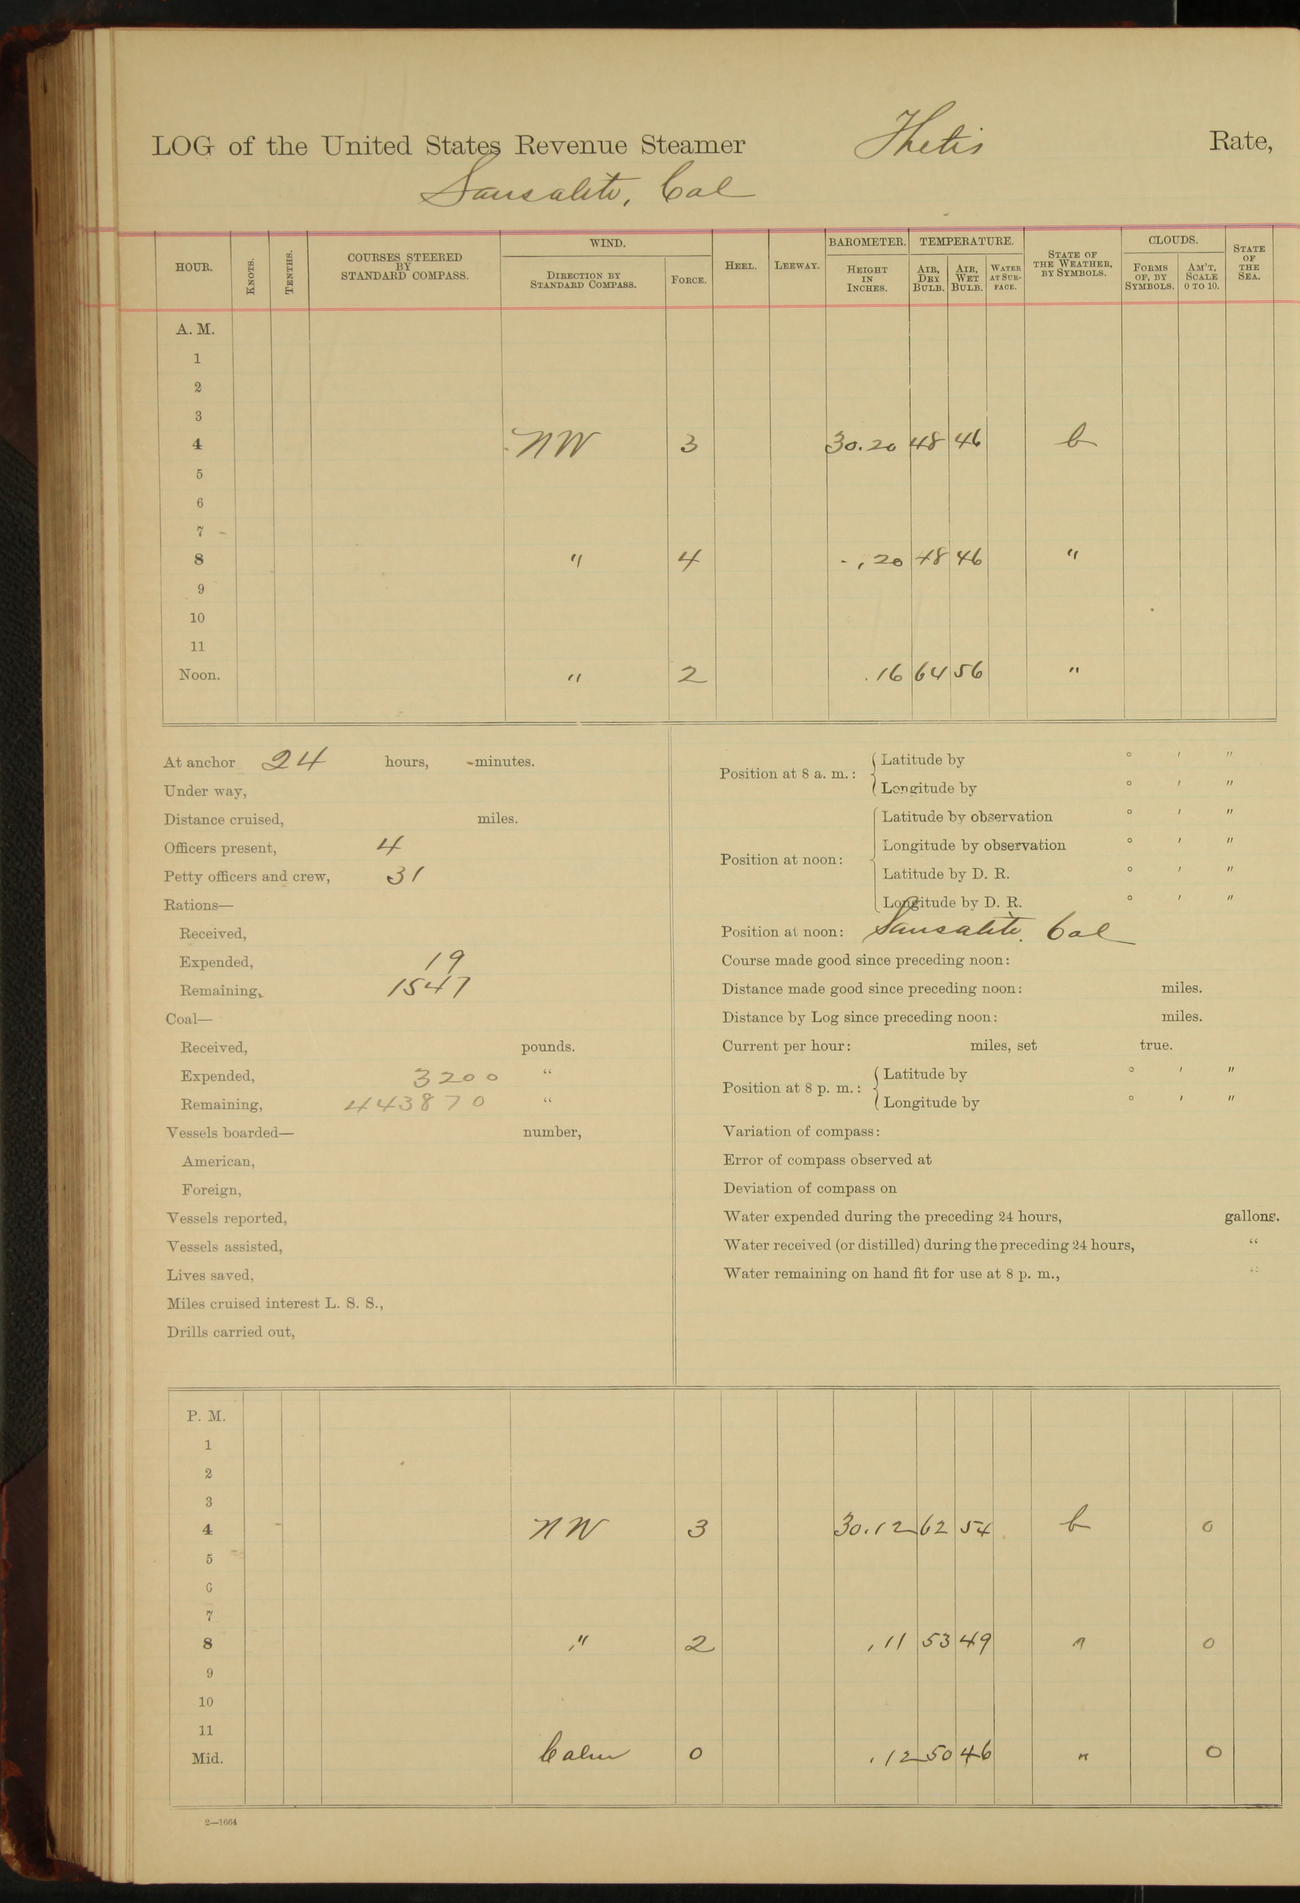 LOG of the United States Revenue Steamer Thetis Rate,
Sausalito, Cal
HOUR. KNOTS. TENTHS. COURSES STEERED BY STANDARD COMPASS. WIND. DIRECTION BY STANDARD COMPASS. FORCE. HEEL. LEEWAY. BAROMETER. HEIGHT IN INCHES. TEMPERATURE. AIR, DRY BULB. AIR, WET BULB. WATER AT SURFACE. STATE OF THE WEATHER, BY SYMBOLS. CLOUDS. FORMS OF, BY SYMBOLS. AM'T, SCALE 0 TO 10. STATE OF THE SEA.
A. M.
1
2
3
4 NW 3 30.20 48 46 b
5
6
7
8 " 4 - .20 48 46 "
9
10
11
Noon. " 2 .16 64 56 "
At anchor 24 hours, - minutes.
Under way,
Distance cruised, miles.
Officers present, 4
Petty officers and crew, 31
Rations—
Received,
Expended, 19
Remaining, 1547
Coal—
Received, pounds.
Expended, 3200 "
Remaining, 443870 "
Vessels boarded— number,
American,
Foreign,
Vessels reported,
Vessels assisted,
Lives saved,
Miles cruised interest L. S. S.,
Drills carried out,
Position at 8 a. m.: Latitude by ° ′ ″
Longitude by ° ′ ″
Position at noon: Latitude by observation ° ′ ″
Longitude by observation ° ′ ″
Latitude by D. R. ° ′ ″
Longitude by D. R. ° ′ ″
Position at noon: Sausalito, Cal
Course made good since preceding noon:
Distance made good since preceding noon: miles.
Distance by Log since preceding noon: miles.
Current per hour: miles, set true.
Position at 8 p. m.: Latitude by ° ′ ″
Longitude by ° ′ ″
Variation of compass:
Error of compass observed at
Deviation of compass on
Water expended during the preceding 24 hours, gallons.
Water received (or distilled) during the preceding 24 hours, "
Water remaining on hand fit for use at 8 p. m., "
P. M.
1
2
3
4 NW 3 30.12 62 54 b 0
5
6
7
8 " 2 .11 53 49 " 0
9
10
11
Mid. Calm 0 .12 50 46 " 0
2—1664